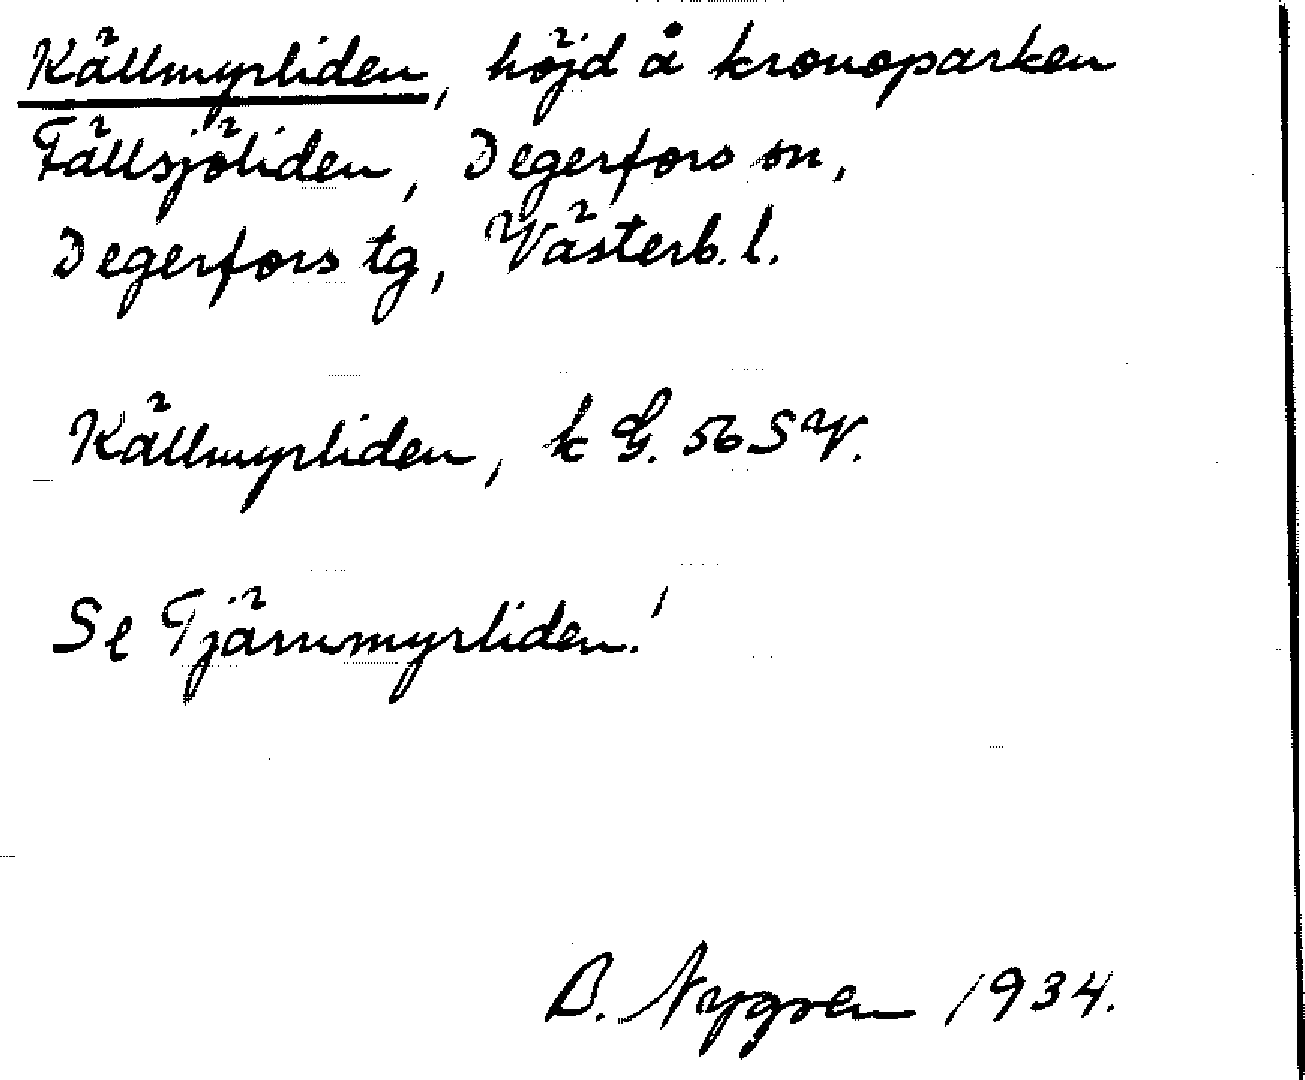 Källmyrliden, höjd å kronoparken
Fällsjöliden, Degerfors sn,
Degerfors tg, Västerb. l.
Källmyrliden, k G. 56 SV.
Se Tjärnmyrliden!
B. Nygren 1934.